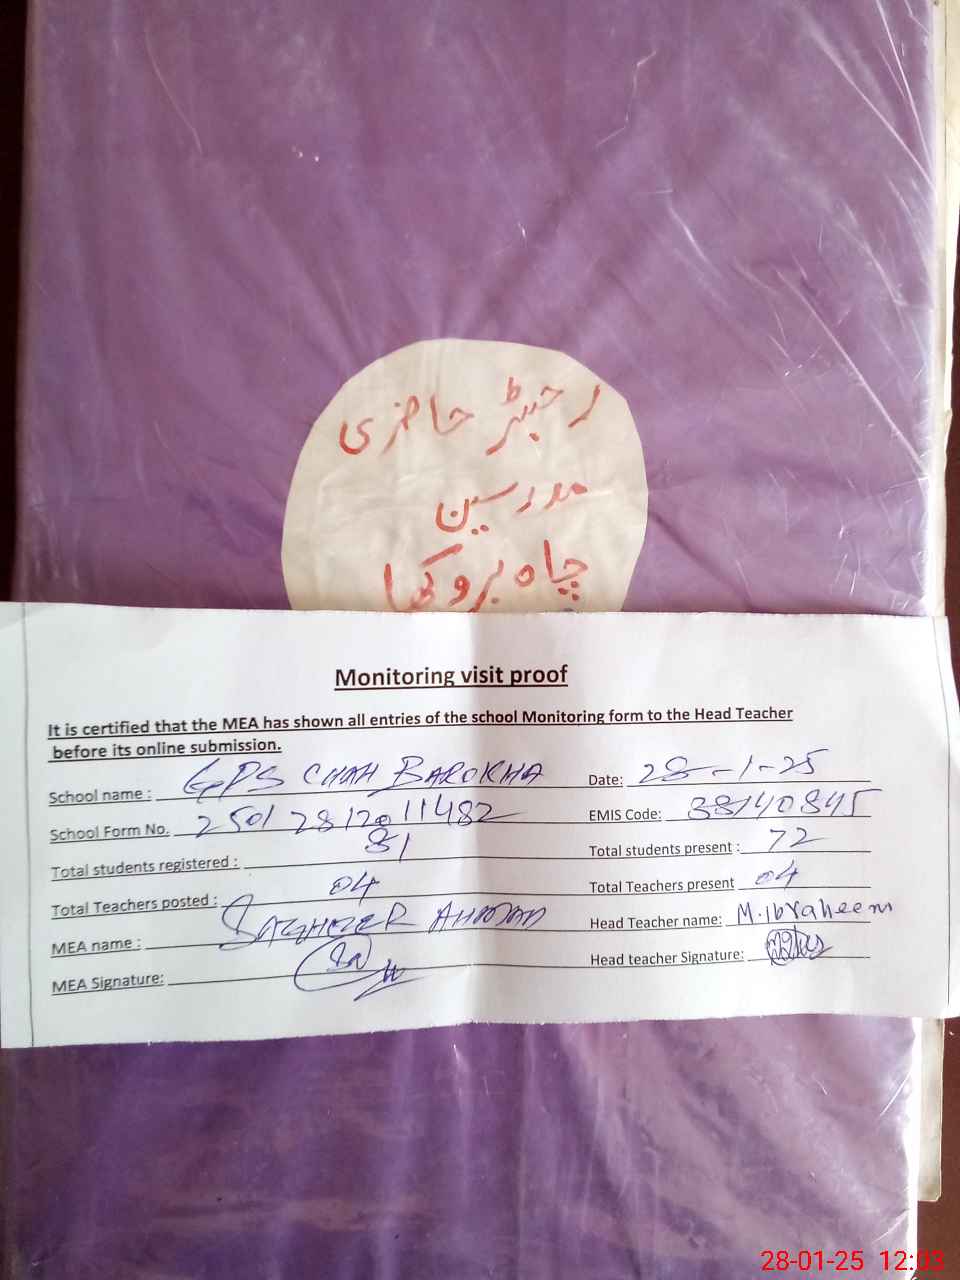 رجسٹر حاضری
مدرسین
چاہ بروکھا
Monitoring visit proof
It is certified that the MEA has shown all entries of the school Monitoring form to the Head Teacher
before its online submission.
School name : GPS CHAH BAROKHA Date: 28-1-25
School Form No. 2501281201 1482 EMIS Code: 38140845
Total students registered : 81 Total students present : 72
Total Teachers posted : 04 Total Teachers present 04
MEA name : SAGHEER AHMAD Head Teacher name: M.ibraheem
MEA Signature: Head teacher Signature:
28-01-25 12:03